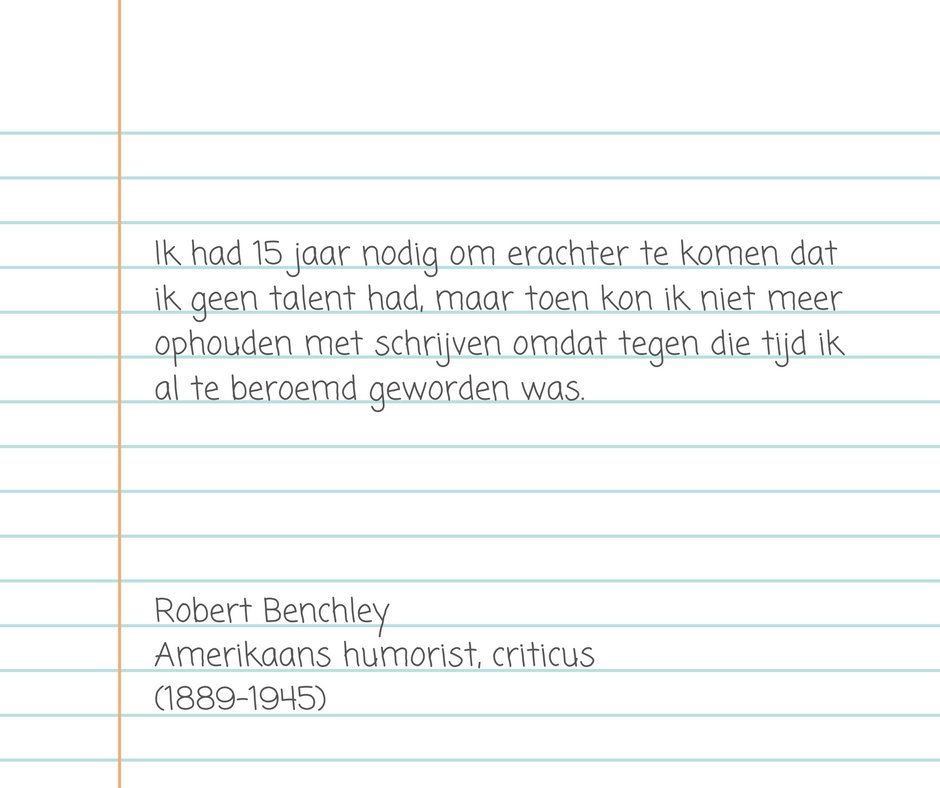 Ik had 15 jaar nodig om erachter te komen dat
ik geen talent had, maar toen kon ik niet meer
ophouden met schrijven omdat tegen die tijd ik
al te beroemd geworden was.
Robert Benchley
Amerikaans humorist, criticus
(1889-1945)